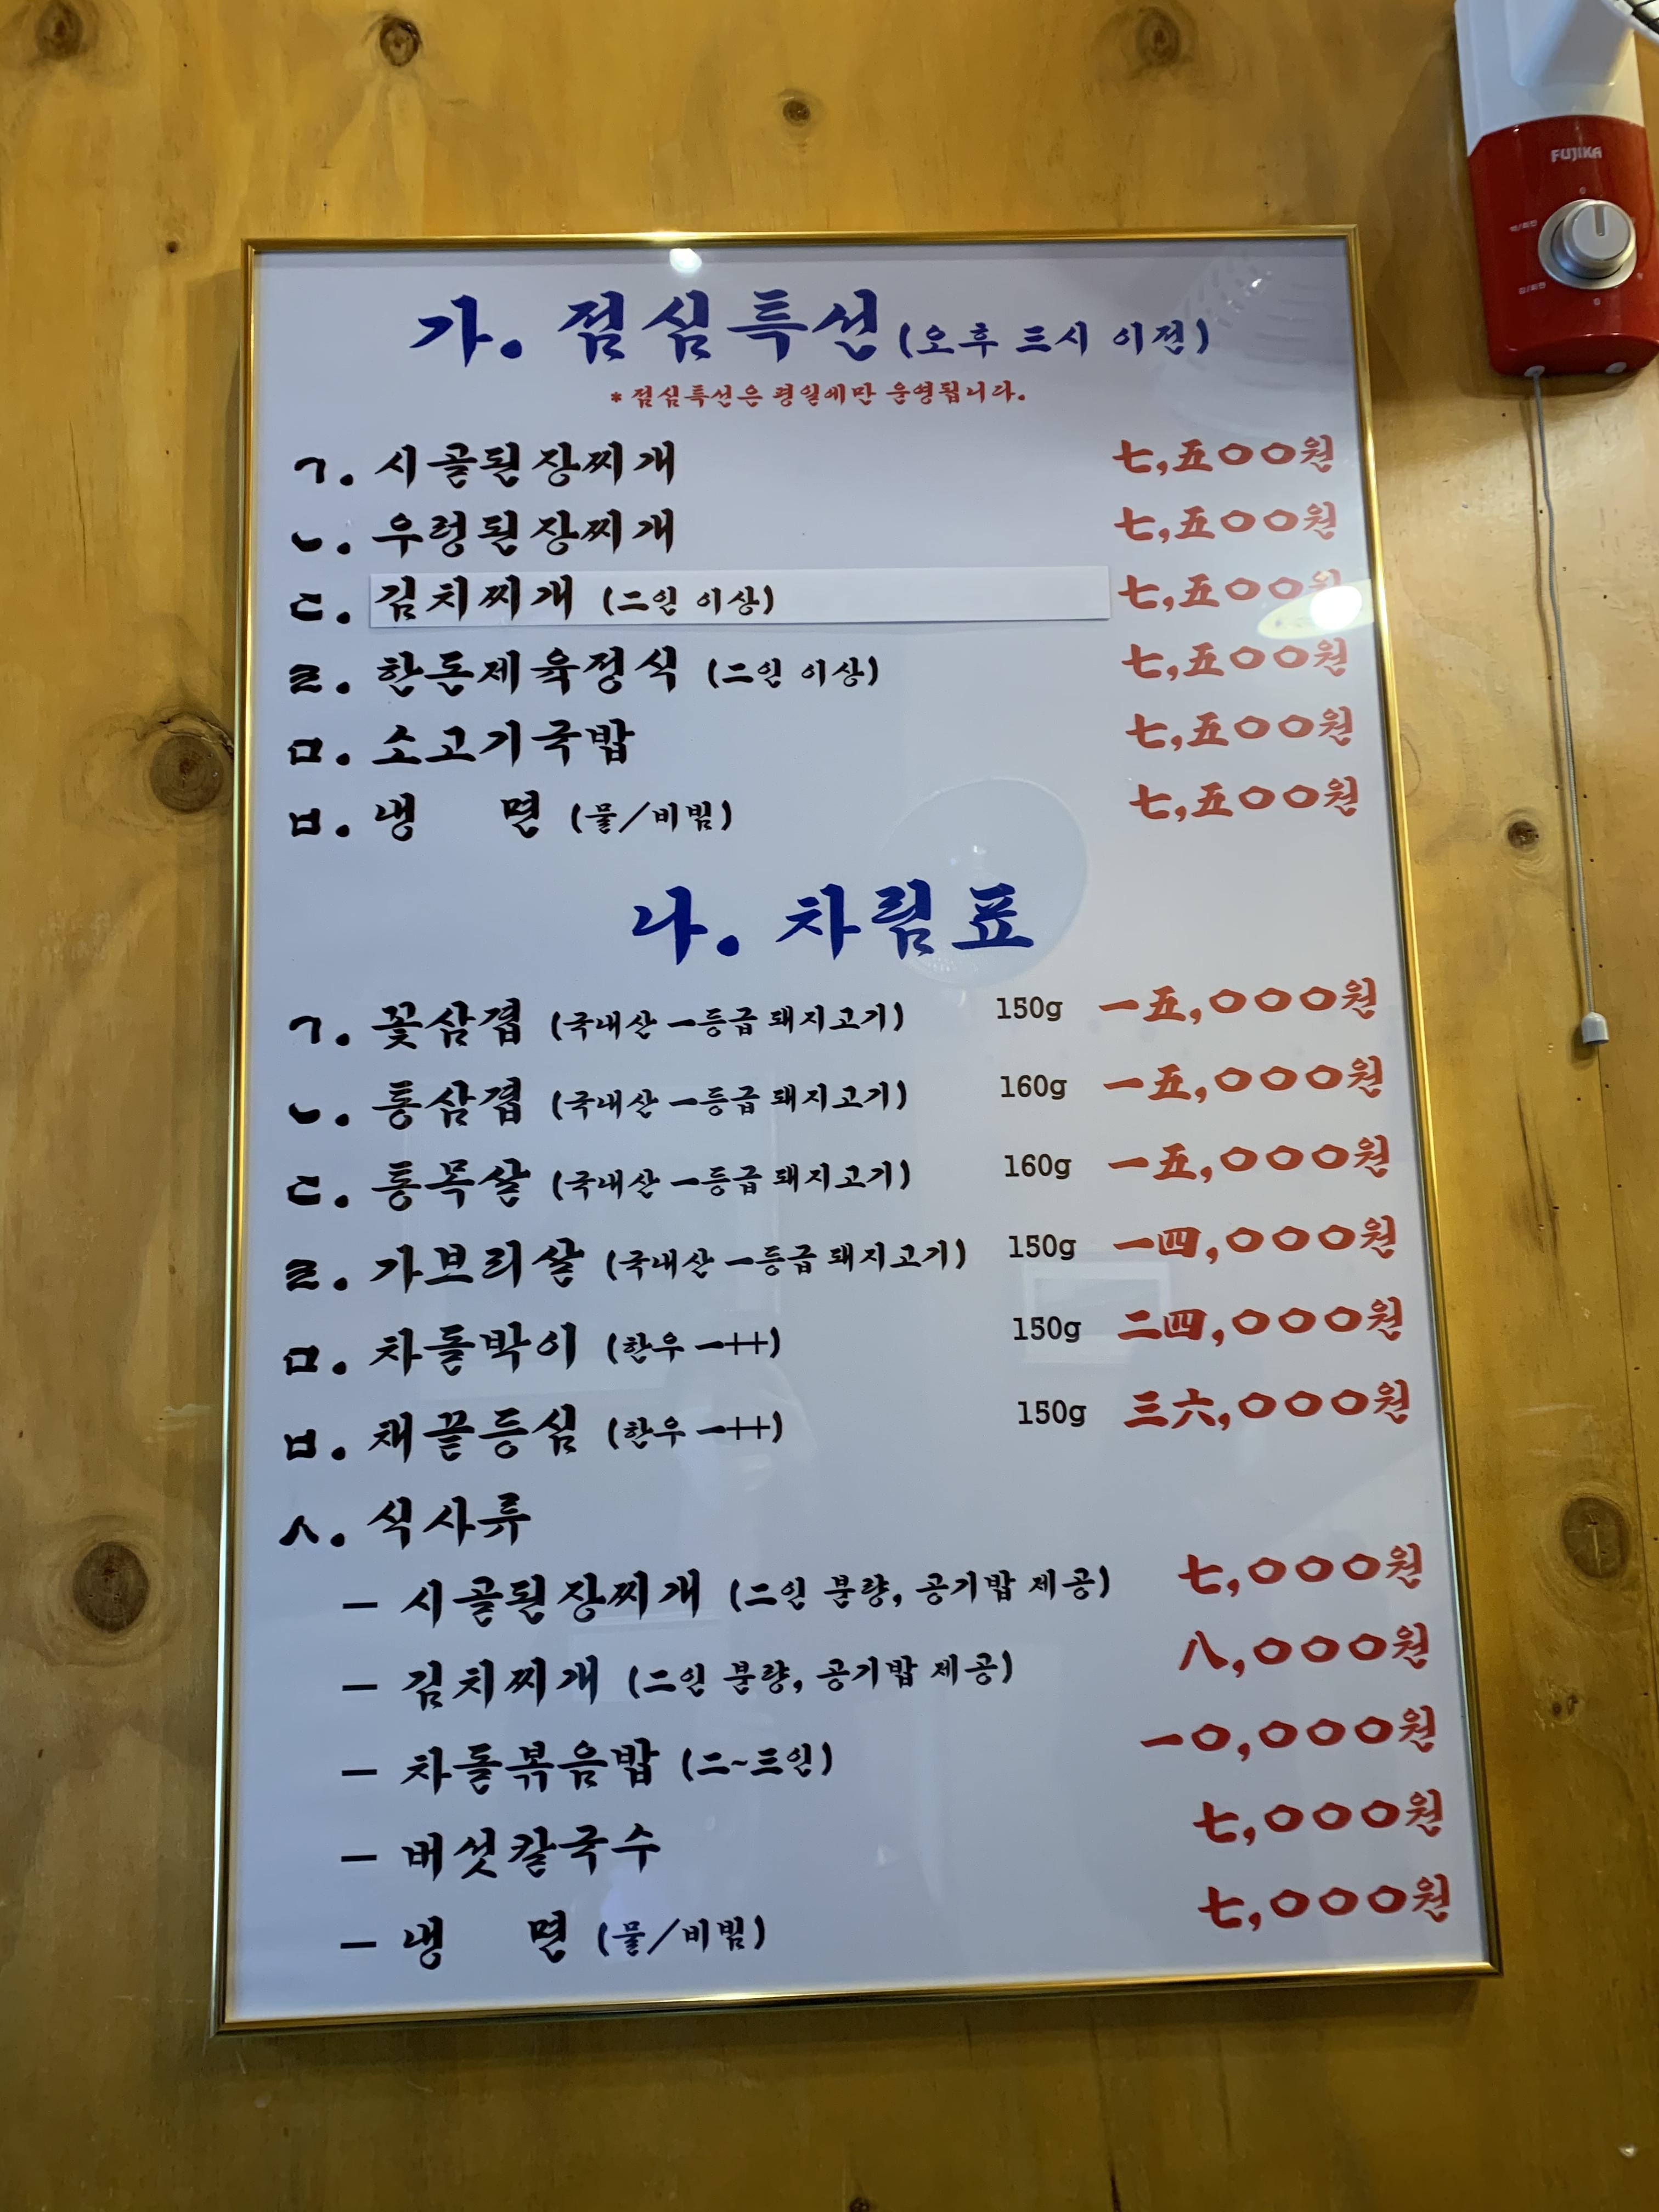 FUJIKA
가. 점심특선 (오후 三시 이전)
* 점심특선은 평일에만 운영됩니다.
ㄱ. 시골된장찌개 七,五〇〇원
ㄴ. 우렁된장찌개 七,五〇〇원
ㄷ. 김치찌개 (二인 이상) 七,五〇〇원
ㄹ. 한돈제육정식 (二인 이상) 七,五〇〇원
ㅁ. 소고기국밥 七,五〇〇원
ㅂ. 냉 면 (물/비빔) 七,五〇〇원
나. 차림표
ㄱ. 꽃삼겹 (국내산 一등급 돼지고기) 150g 一五,〇〇〇원
ㄴ. 통삼겹 (국내산 一등급 돼지고기) 160g 一五,〇〇〇원
ㄷ. 통목살 (국내산 一등급 돼지고기) 160g 一五,〇〇〇원
ㄹ. 가브리살 (국내산 一등급 돼지고기) 150g 一四,〇〇〇원
ㅁ. 차돌박이 (한우 一++) 150g 二四,〇〇〇원
ㅂ. 채끝등심 (한우 一++) 150g 三六,〇〇〇원
ㅅ. 식사류
- 시골된장찌개 (二인 분량, 공기밥 제공) 七,〇〇〇원
- 김치찌개 (二인 분량, 공기밥 제공) 八,〇〇〇원
- 차돌볶음밥 (二~三인) 一〇,〇〇〇원
- 버섯칼국수 七,〇〇〇원
- 냉 면 (물/비빔) 七,〇〇〇원